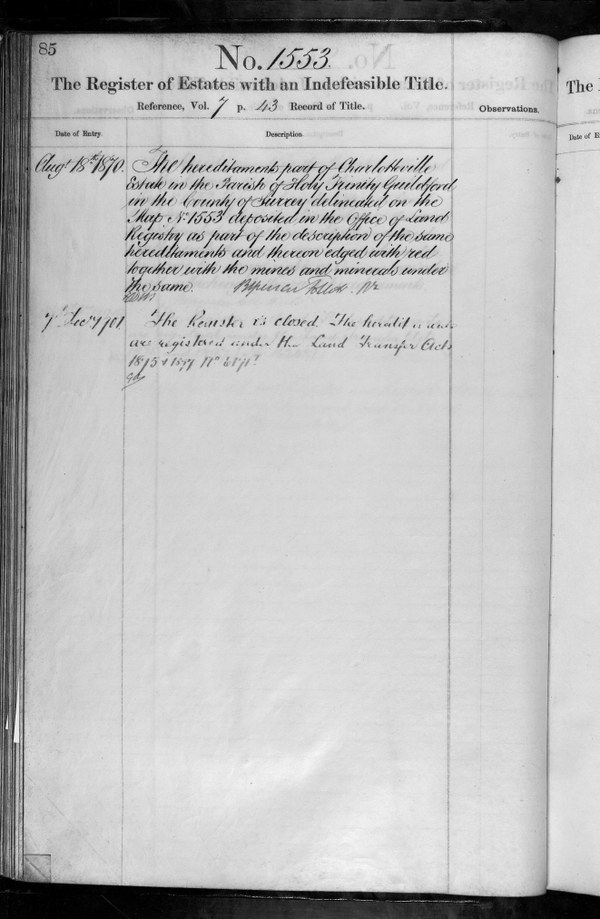 85
No. 1553
The Register of Estates with an Indefeasible Title.
Reference, Vol. 7 p. 43 Record of Title.
Observations.
Date of Entry.
Description.
Augt. 18th 1870.
The hereditaments part of Charlotteville
Estate in the Parish of Holy Trinity Guildford
in the County of Surrey delineated on the
Map No. 1553 deposited in the Office of Land
Registry as part of the description of the same
hereditaments and thereon edged with red
together with the mines and minerals under
the same.
The Register is closed. The heredit
are registered under the Land Transfer Acts
1875 & 1897
The
Date of E